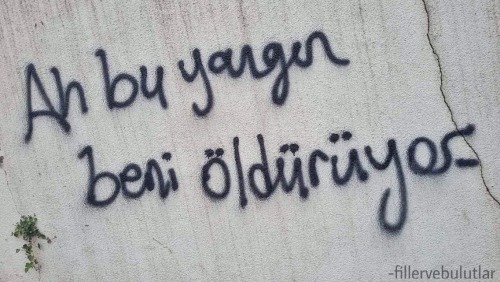 Ah bu yangın
beni öldürüyor
-fillervebulutlar